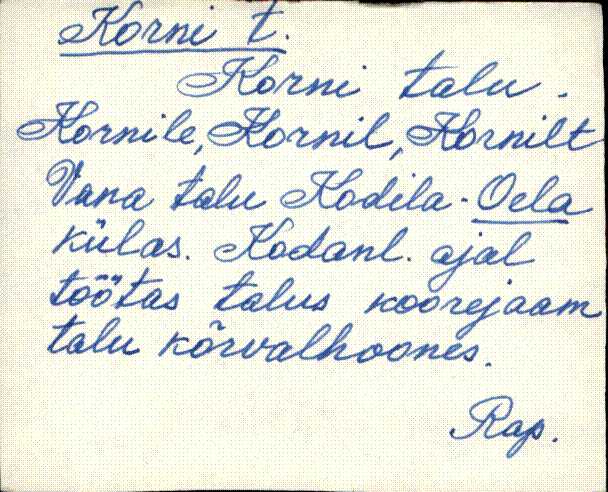 Korni t.
Korni talu.
Kornile, Kornil, Kornilt
Vana talu Kodila-Oela
külas. Kodanl. ajal
töötas talus koorejaam
talu kõrvalhoones.
Rap.